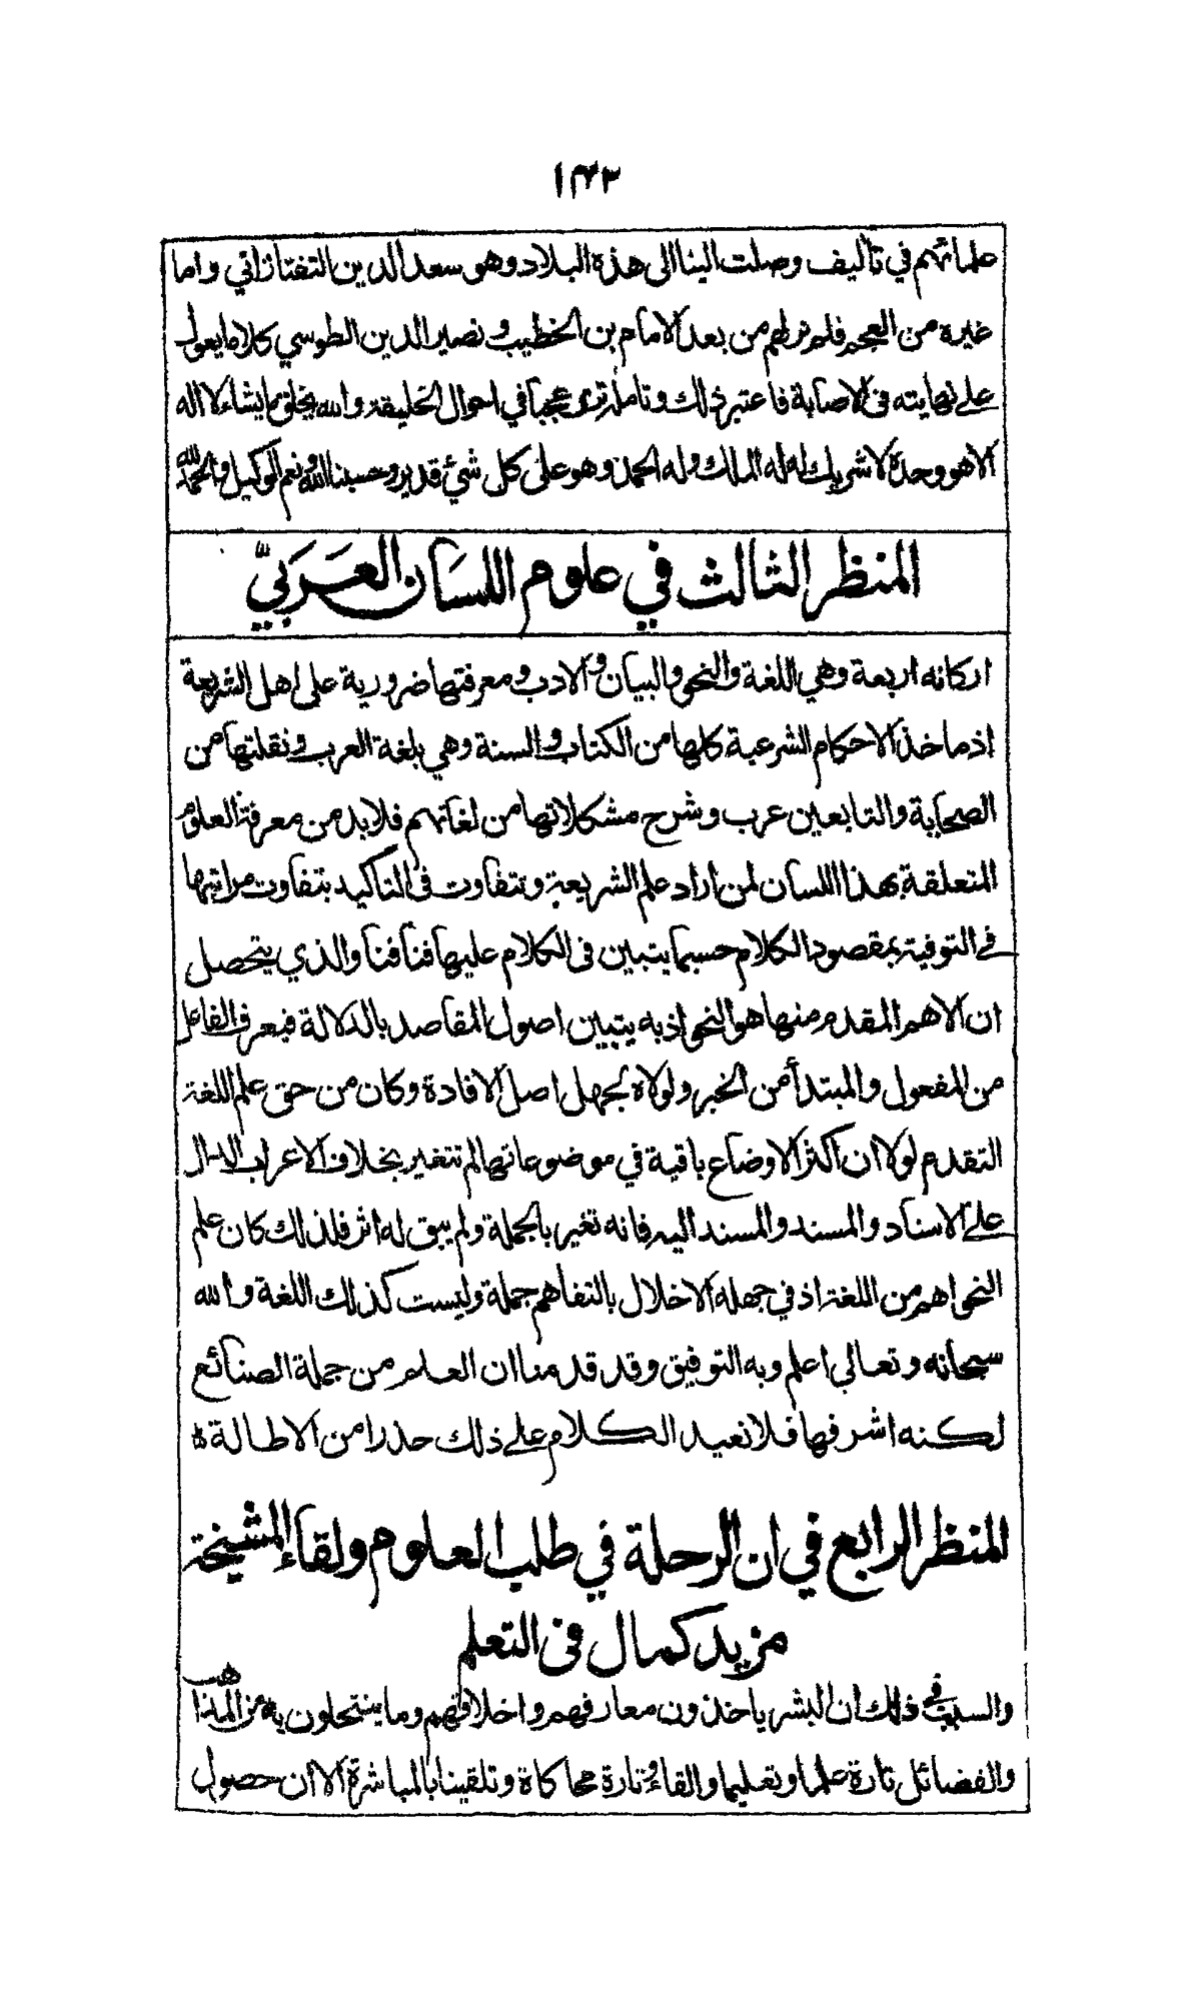 ١٤٣
علمائهم في تأليف وصلت الينا الى هذه البلاد وهو سعد الدين التفتازاني واما
غيره من العجم فلم نر لهم من بعد الامام بن الخطيب ونصير الدين الطوسي كلاما يعول
على نهايته في الاصابة فاعتبر ذلك وتامله ترى عجبا في احوال الخليقة والله يخلق ما يشاء لا اله
الا هو وحده لا شريك له له الملك وله الحمد وهو على كل شئ قدير وحسبنا الله ونعم الوكيل والحمد لله
المنظر الثالث في علوم اللسان العَرَبيّ
اركانه اربعة وهي اللغة والنحو والبيان والادب ومعرفتها ضرورية على اهل الشريعة
اذ ماخذ الاحكام الشرعية كلها من الكتاب والسنة وهي بلغة العرب ونقلتها من
الصحابة والتابعين عرب وشرح مشكلاتها من لغاتهم فلا بد من معرفة العلوم
المتعلقة بهذا اللسان لمن اراد علم الشريعة وتتفاوت في التاكيد بتفاوت مراتبها
في التوفية بمقصود الكلام حسبما يتبين في الكلام عليها فنا فنا والذي يتحصل
ان الاهم المقدم منها هو النحو اذ به يتبين اصول المقاصد بالدلالة فيعرف الفاعل
من المفعول والمبتدأ من الخبر ولولاه لجهل اصل الافادة وكان من حق علم اللغة
التقدم لولا ان اكثر الاوضاع باقية في موضوعاتها لم تتغير بخلاف الاعراب الدال
على الاسناد والمسند والمسند اليه فانه تغير بالجملة ولم يبق له اثر فلذلك كان علم
النحو اهم من اللغة اذ في جهله الاخلال بالتفاهم جملة وليست كذلك اللغة والله
سبحانه وتعالى اعلم وبه التوفيق وقد قدمنا ان العلم من جملة الصنائع
لكنه اشرفها فلا نعيد الكلام على ذلك حذرا من الاطالة
المنظر الرابع في ان الرحلة في طلب العلوم ولقاء المشيخة
مزيد كمال في التعلم
والسبب في ذلك ان البشر ياخذون معارفهم واخلاقهم وما ينتحلون به من المذاهب
والفضائل تارة علما وتعليما والقاء وتارة محاكاة وتلقينا بالمباشرة الا ان حصول